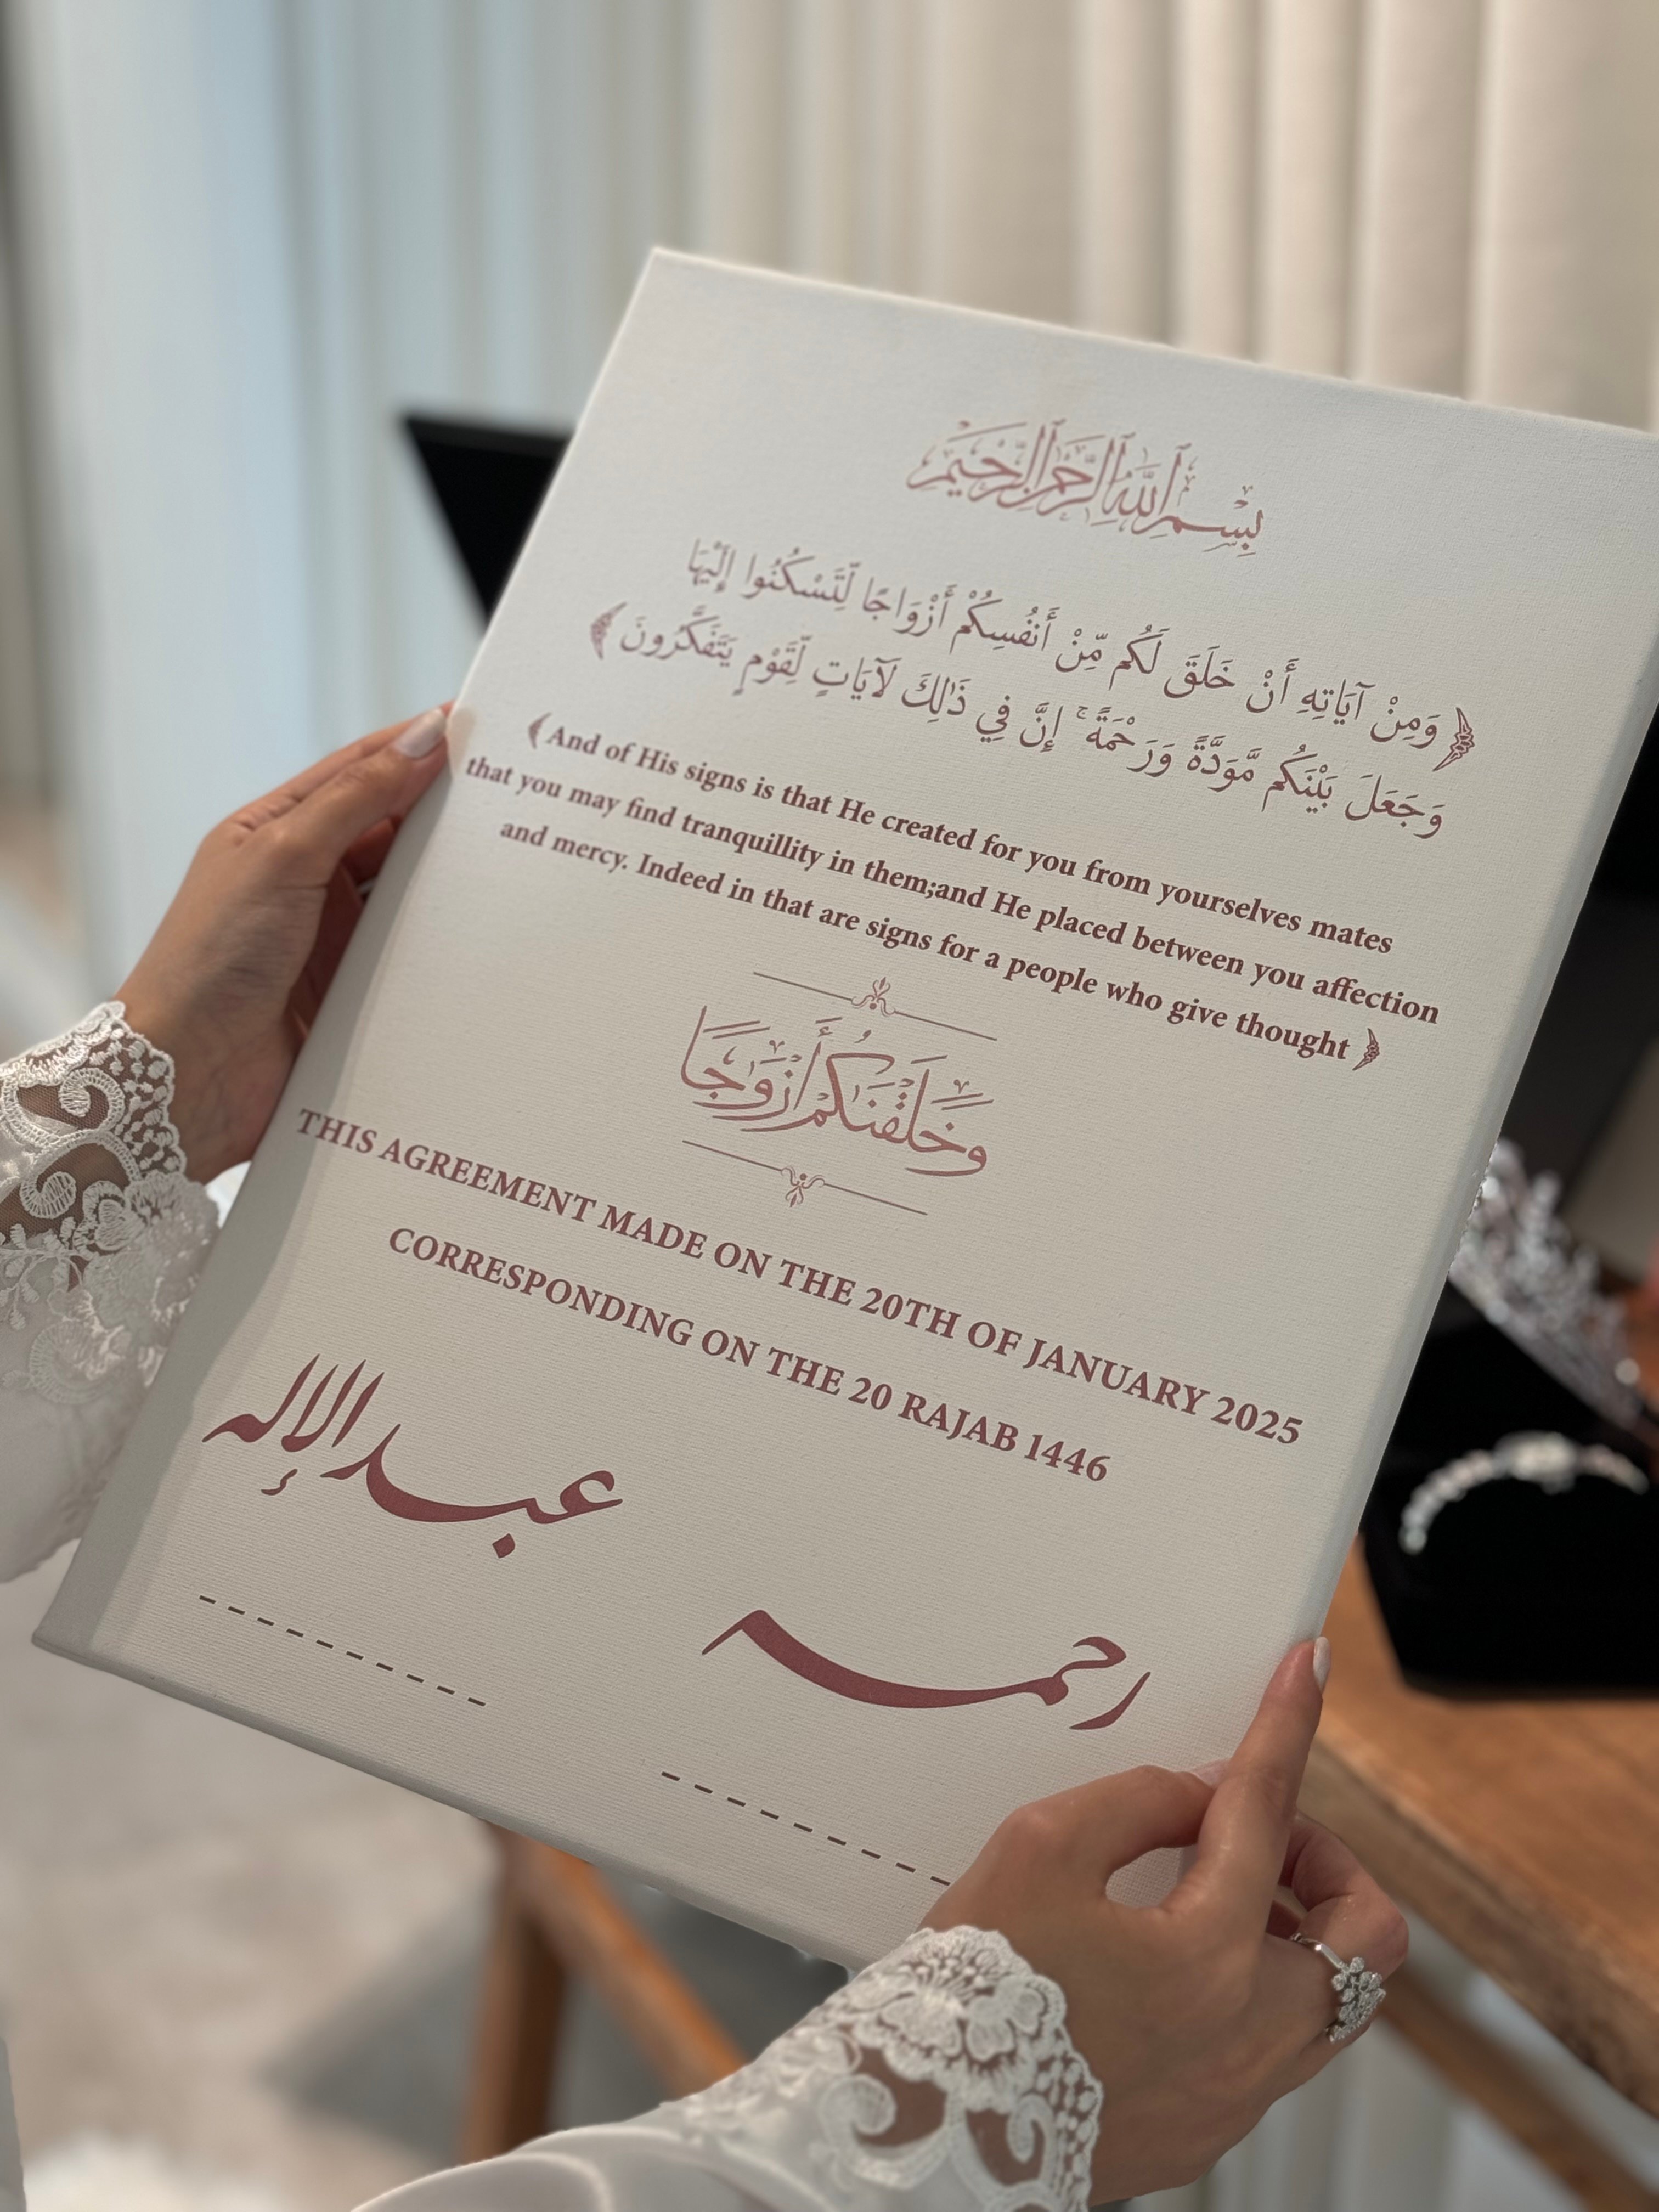 بِسْمِ ٱللَّهِ ٱلرَّحْمَٰنِ ٱلرَّحِيمِ
﴿ وَمِنْ آيَاتِهِ أَنْ خَلَقَ لَكُم مِّنْ أَنفُسِكُمْ أَزْوَاجًا لِّتَسْكُنُوا إِلَيْهَا
وَجَعَلَ بَيْنَكُم مَّوَدَّةً وَرَحْمَةً ۚ إِنَّ فِي ذَٰلِكَ لَآيَاتٍ لِّقَوْمٍ يَتَفَكَّرُونَ ﴾
﴾And of His signs is that He created for you from yourselves mates
that you may find tranquillity in them;and He placed between you affection
and mercy. Indeed in that are signs for a people who give thought ﴿
وَخَلَقْنَٰكُمْ أَزْوَٰجًا
THIS AGREEMENT MADE ON THE 20TH OF JANUARY 2025
CORRESPONDING ON THE 20 RAJAB 1446
عبدالإله
رحمه